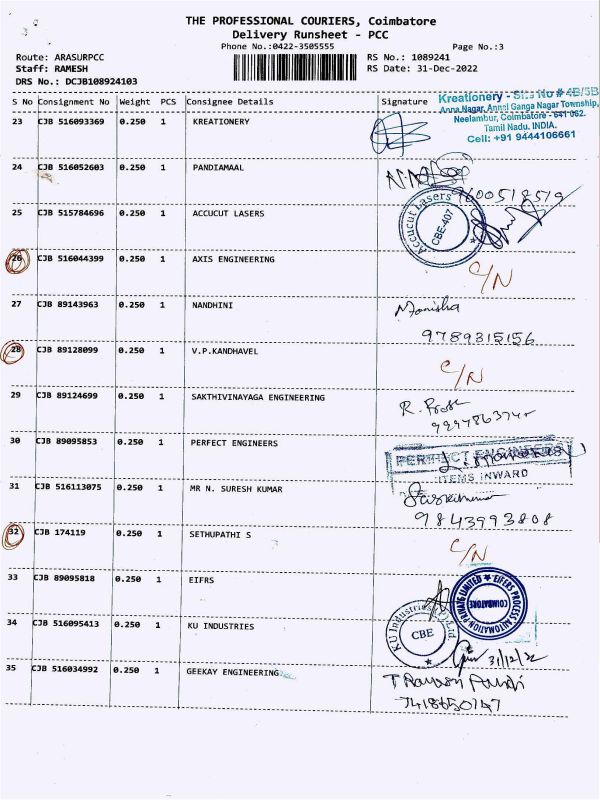 THE PROFESSIONAL COURIERS, Coimbatore
Delivery Runsheet - PCC
Phone No.:0422-3505555 Page No.:3
Route: ARASURPCC RS No.: 1089241
Staff: RAMESH RS Date: 31-Dec-2022
DRS No.: DCJB108924103
S No Consignment No Weight PCS Consignee Details Signature
Kreationery - Site No # 4B/5B
Anna Nagar, Annai Ganga Nagar Township,
Neelambur, Coimbatore - 641 062.
Tamil Nadu. INDIA.
Cell: +91 9444106661
23 CJB 516093369 0.250 1 KREATIONERY
24 CJB 516052603 0.250 1 PANDIAMAAL
9600518519
25 CJB 515784696 0.250 1 ACCUCUT LASERS
Accucut Lasers
CBE-407
26 CJB 516044399 0.250 1 AXIS ENGINEERING
C/N
27 CJB 89143963 0.250 1 NANDHINI Manisha
9789315156
28 CJB 89128099 0.250 1 V.P.KANDHAVEL
C/N
29 CJB 89124699 0.250 1 SAKTHIVINAYAGA ENGINEERING
R.
30 CJB 89095853 0.250 1 PERFECT ENGINEERS
PERFECT ENGINEERS
ITEMS INWARD
31 CJB 516113075 0.250 1 MR N. SURESH KUMAR
9843993808
32 CJB 174119 0.250 1 SETHUPATHI S
C/N
33 CJB 89095818 0.250 1 EIFRS
EIFERS PROCESS AUTOMATION PRIVATE LIMITED
COIMBATORE
34 CJB 516095413 0.250 1 KU INDUSTRIES
KU Industries Pvt Ltd.
CBE
31/12/22
35 CJB 516034992 0.250 1 GEEKAY ENGINEERING
7418650747